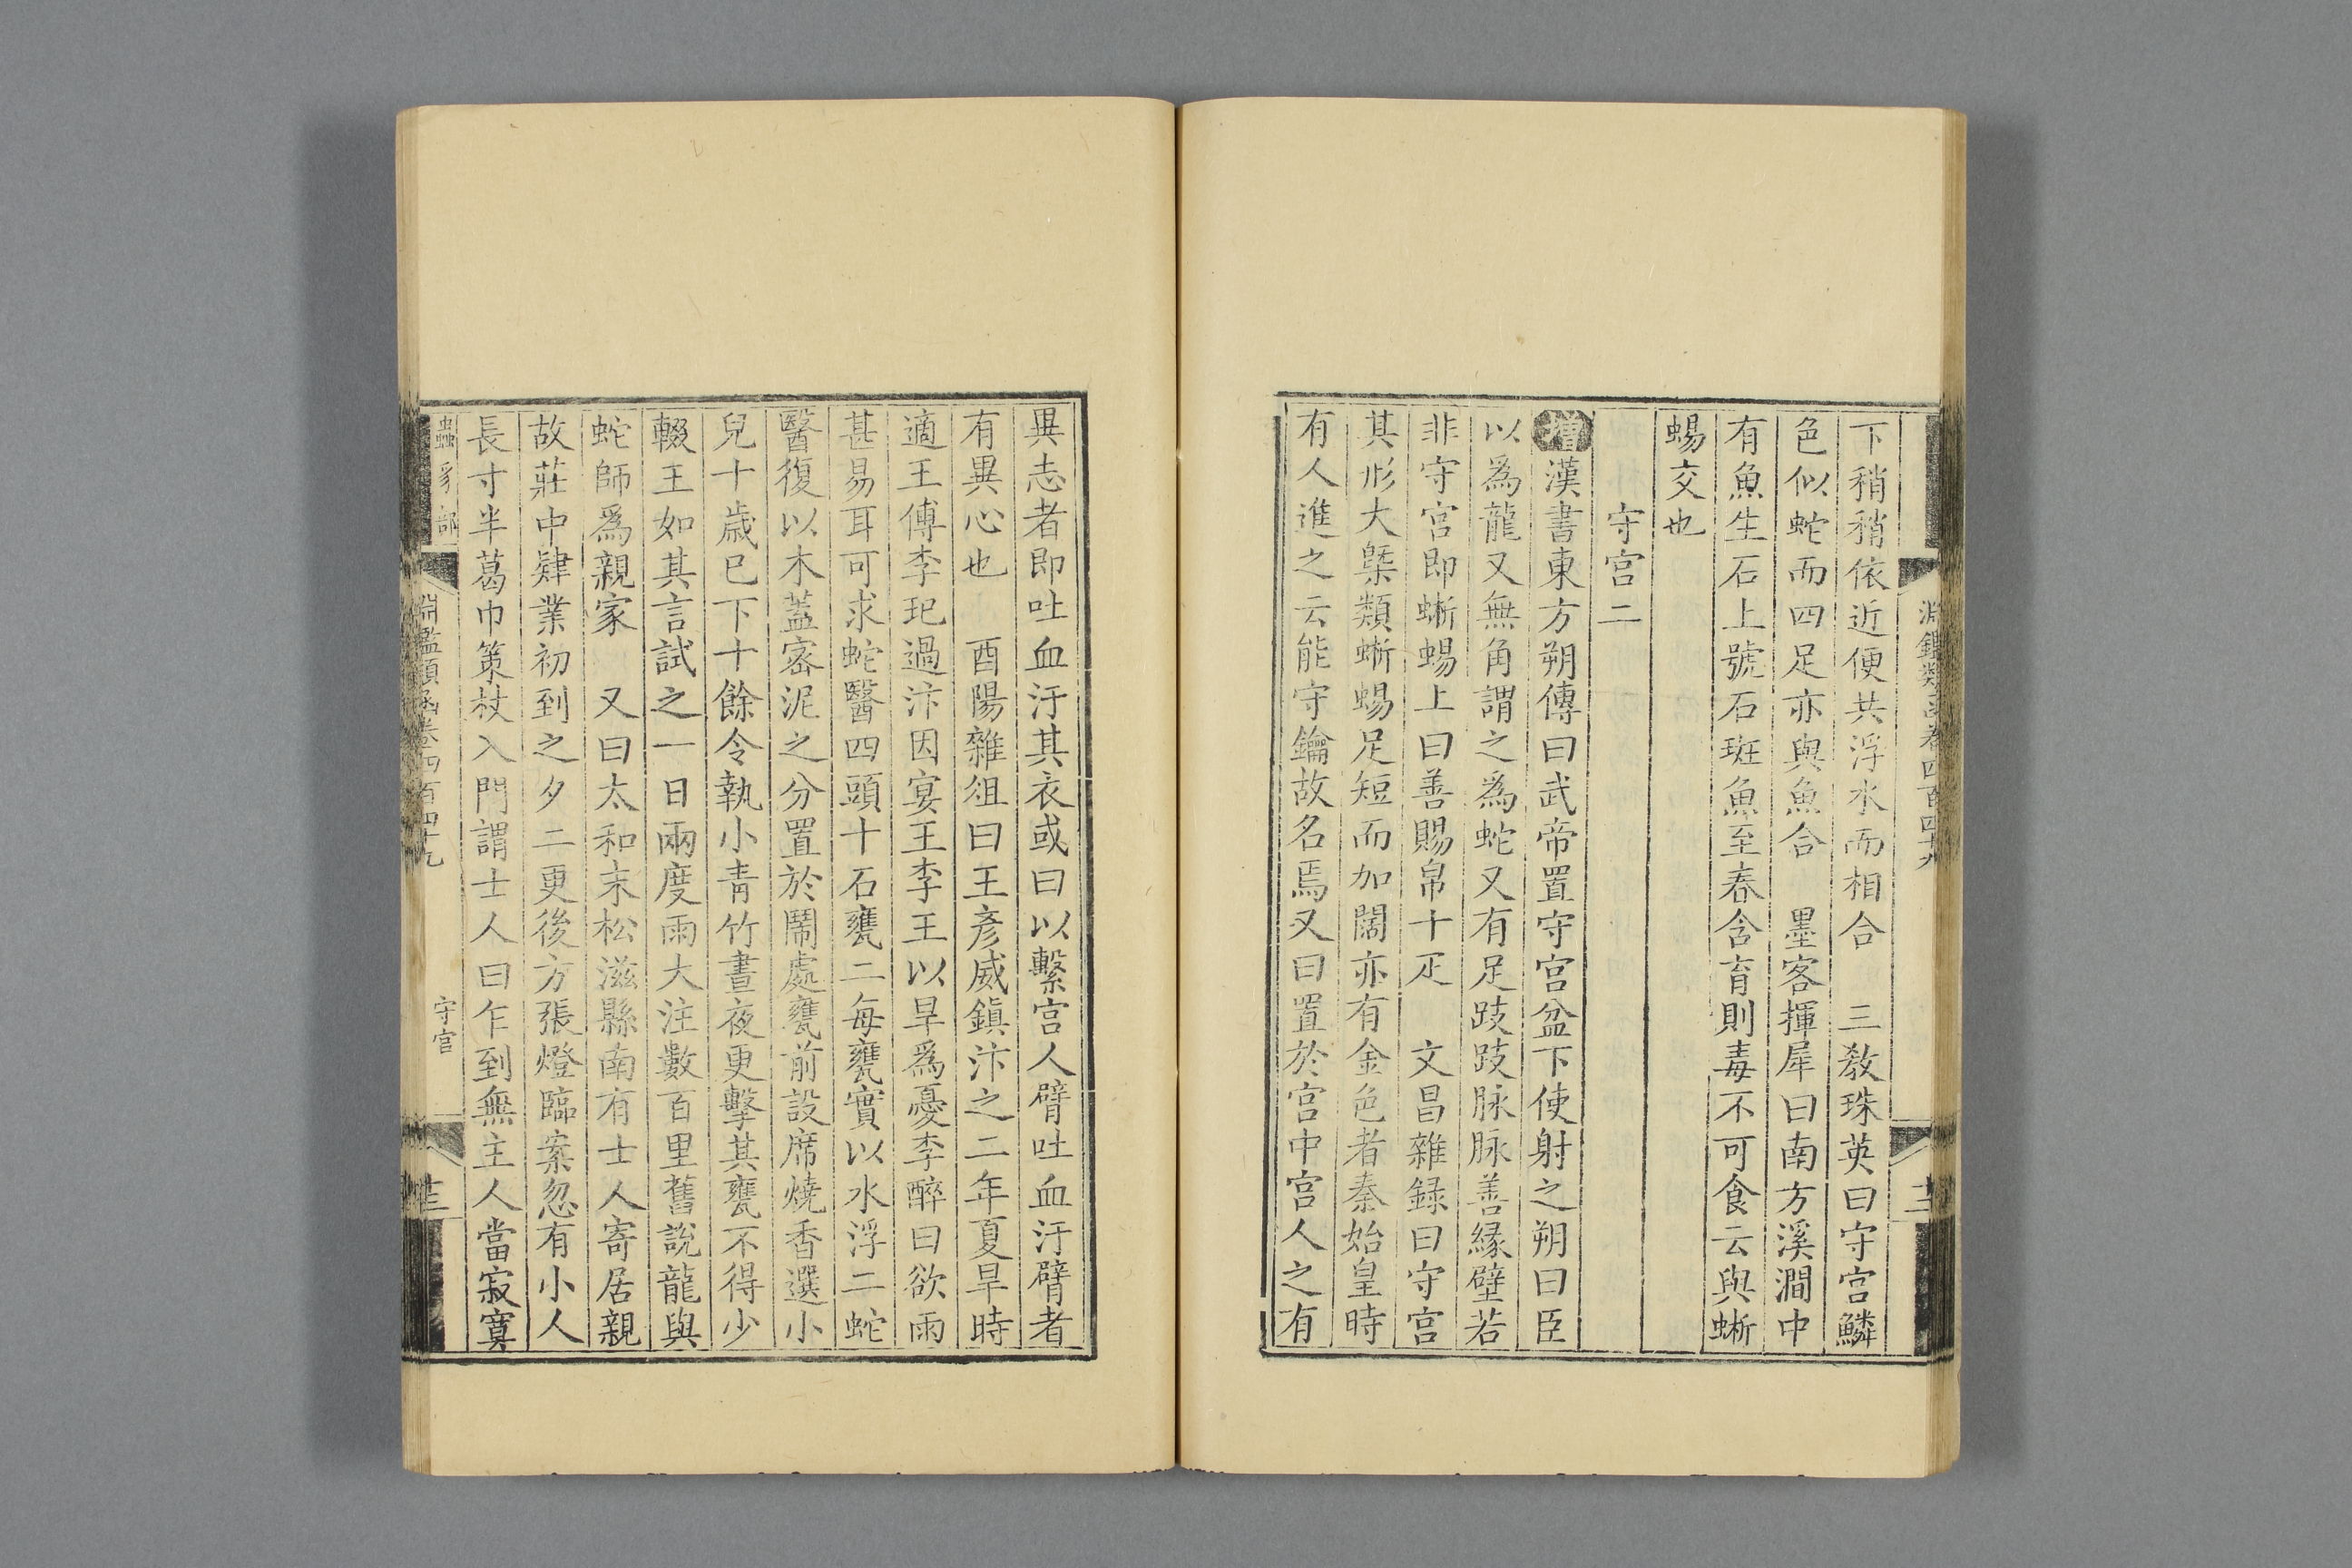 下稍稍依近便共浮水而相合　三教珠英曰守宮鱗
色似蛇而四足亦與魚合　墨客揮犀曰南方溪澗中
有魚生石上號石斑魚至春含育則毒不可食云與蜥
蜴交也
守宮二
增漢書東方朔傳曰武帝置守宮盆下使射之朔曰臣
以爲龍又無角謂之爲蛇又有足跂跂脉脉善縁壁若
非守宮即蜥蜴上曰善賜帛十疋　文昌雜録曰守宮
其形大槩類蜥蜴足短而加闊亦有金色者秦始皇時
有人進之云能守鑰故名焉又曰置於宮中宮人之有
異志者即吐血汙其衣或曰以繫宮人臂吐血汙臂者
有異心也　酉陽雜俎曰王彥威鎭汴之二年夏旱時
適王傅李玘過汴因宴王李王以旱爲憂李醉曰欲雨
甚易耳可求蛇醫四頭十石甕二每甕實以水浮二蛇
醫復以木蓋密泥之分置於鬧處甕前設席燒香選小
兒十歳已下十餘令執小青竹晝夜更擊其甕不得少
輟王如其言試之一日兩度雨大注數百里舊説龍與
蛇師爲親家　又曰太和末松滋縣南有士人寄居親
故莊中肄業初到之夕二更後方張燈臨案忽有小人
長寸半葛巾策杖入門謂士人曰乍到無主人當寂寞
蟲豸部
淵鑑類函卷四百四十九
守宮